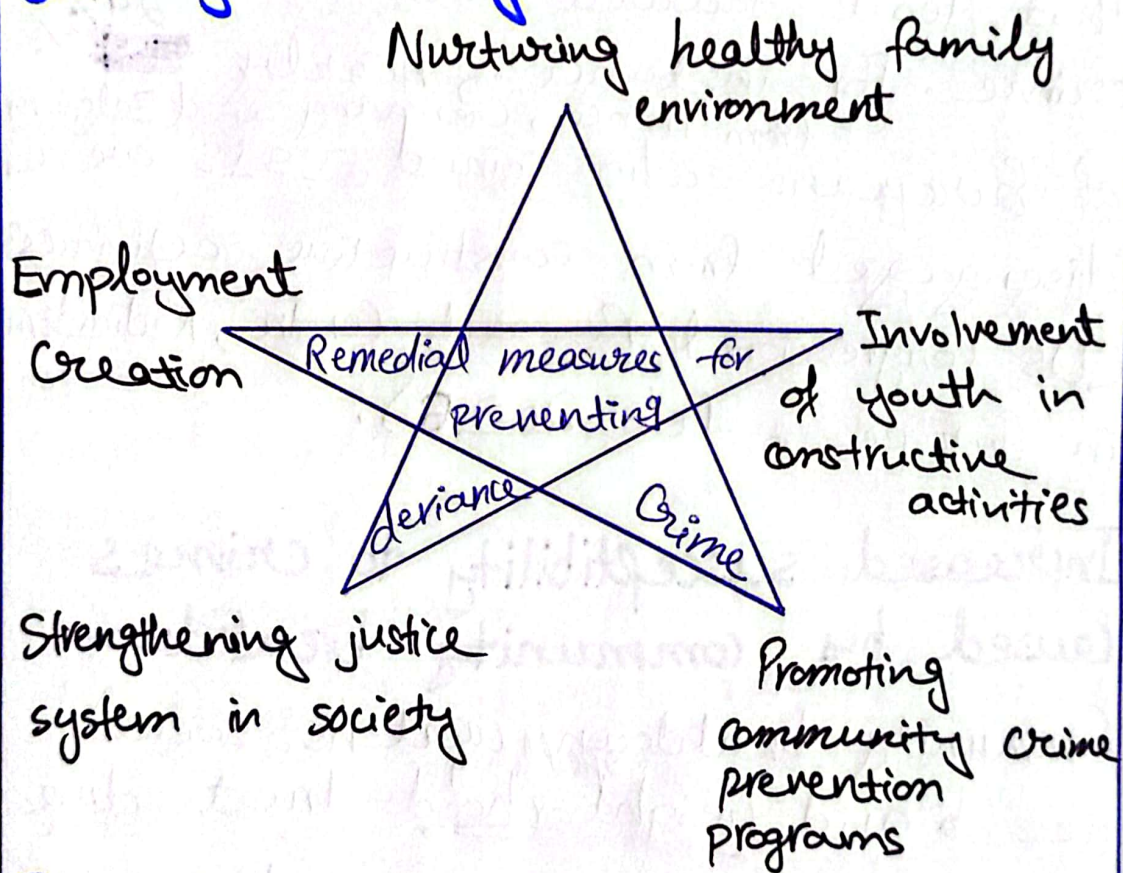 Nurturing healthy family
environment
Employment
Creation
Remedial measures for
preventing
deviance
Crime
Involvement
of youth in
constructive
activities
Strengthening justice
system in society
Promoting
community crime
prevention
programs